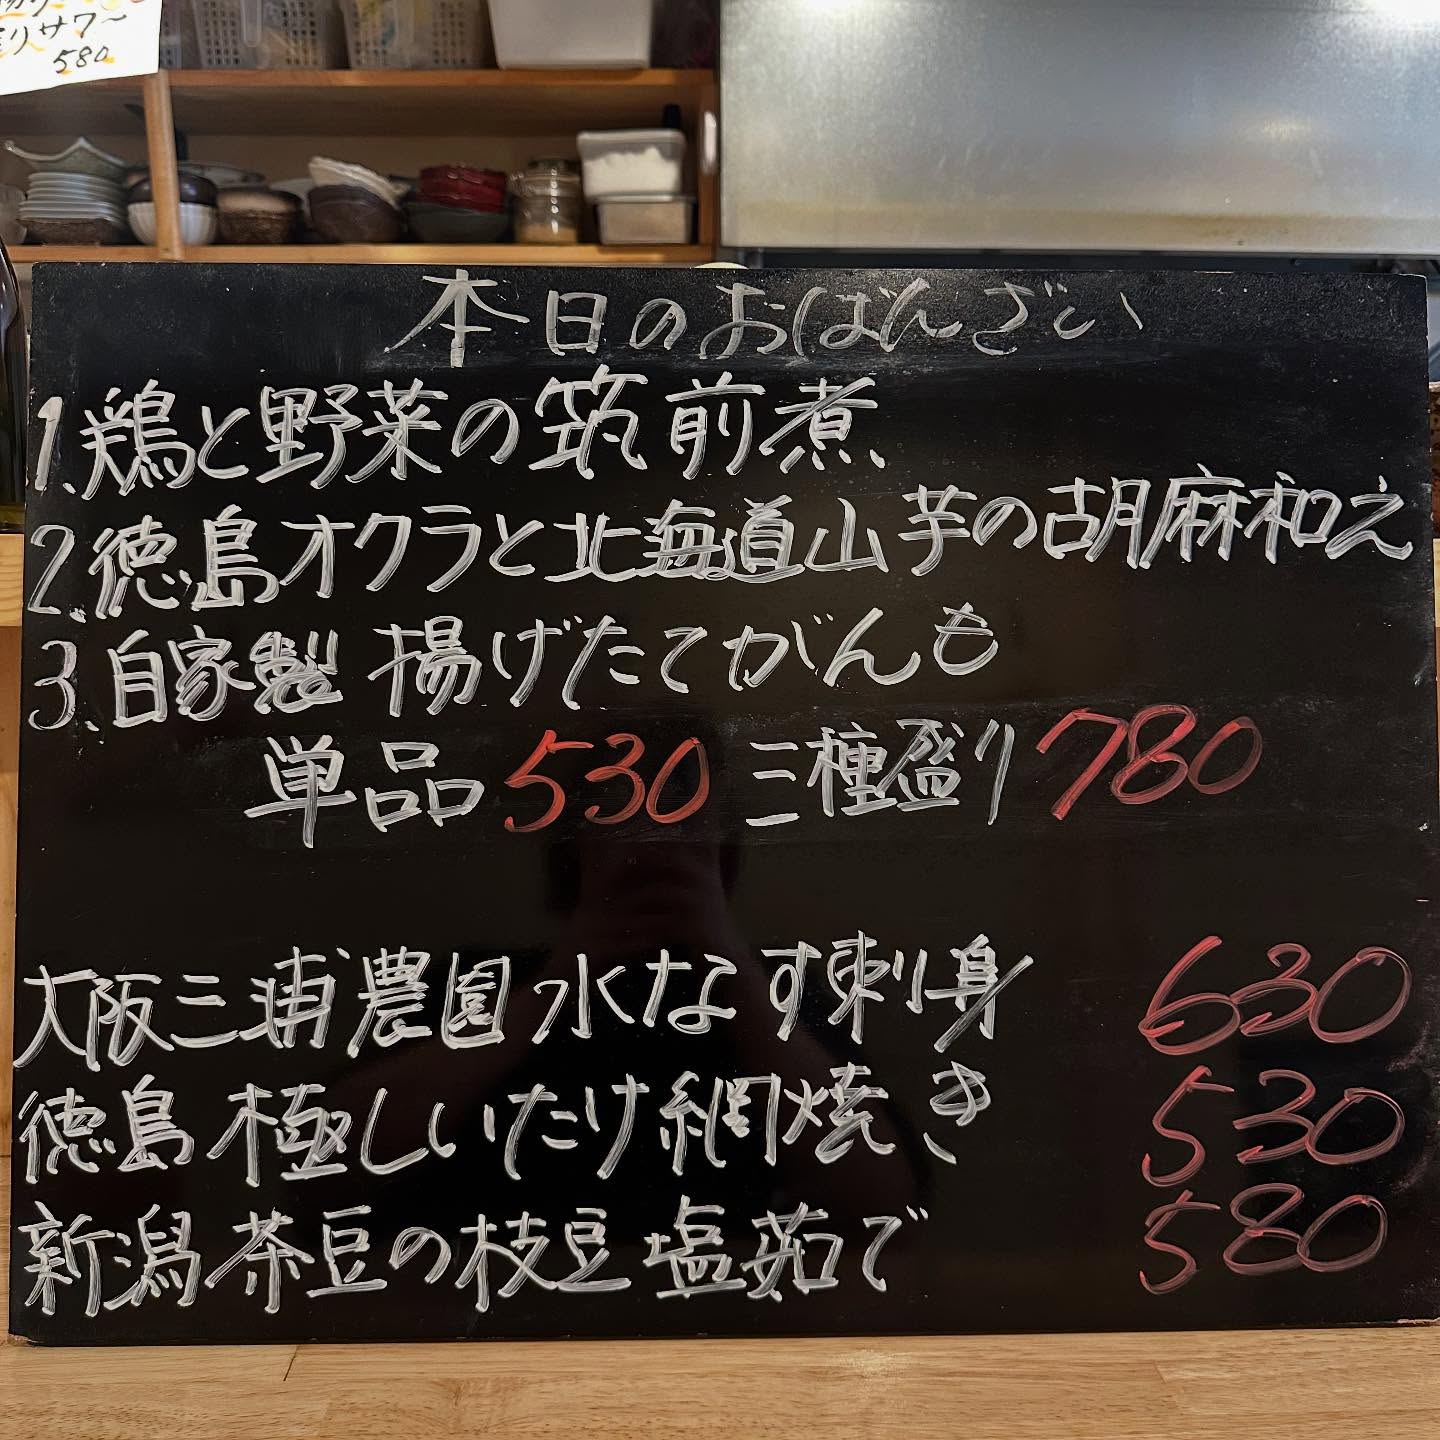 サワー
580
本日のおばんざい
1.鶏と野菜の筑前煮
2.徳島オクラと北海道山芋の胡麻和え
3.自家製 揚げたてがんも
単品 530 三種盛り 780
大阪三浦農園 水なす刺身 630
徳島 極しいたけ網焼き 530
新潟茶豆の枝豆塩茹で 580